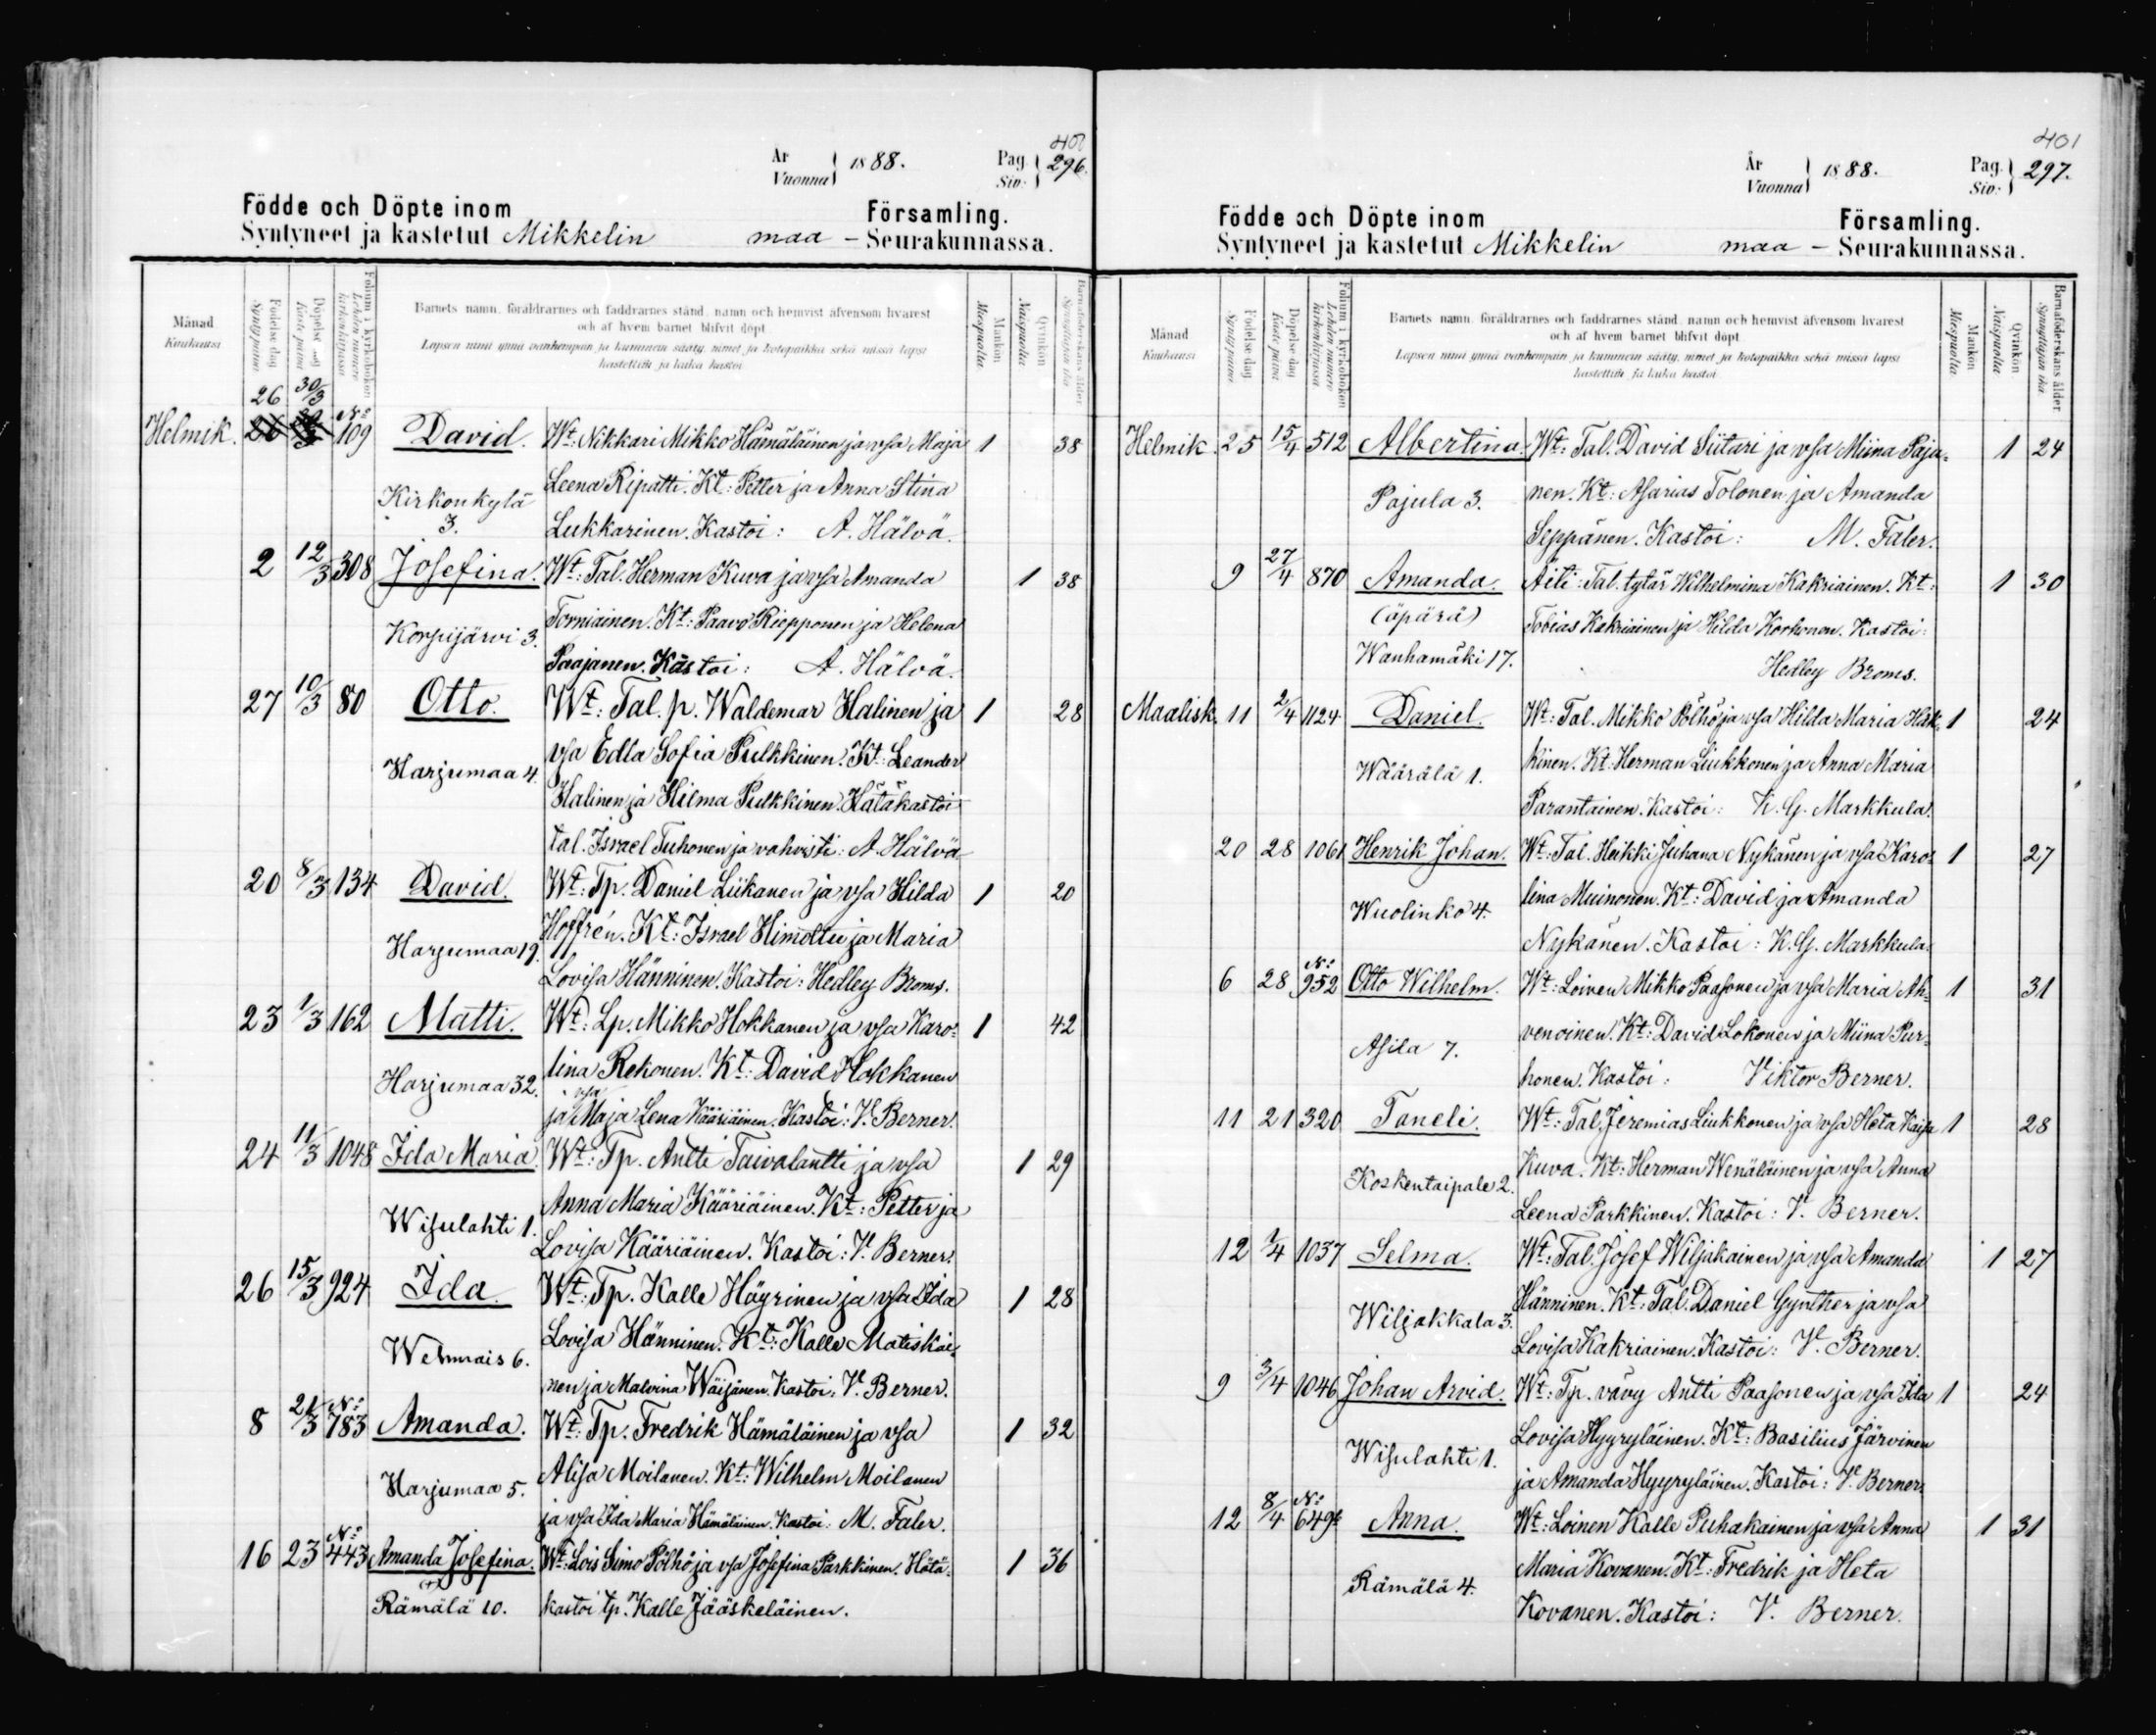 400
År
Vuonna } 1888.
Pag.
Siv: } 296.
Födde och Döpte inom Församling.
Syntyneet ja kastetut Mikkelin maa – Seurakunnassa.
Månad
Kuukausi
Födelse dag
Syntypäivä
Döpelse dag
Kaste päivä
Folium i kyrkoboken
Lehden numero kirkonkirjassa
Barnets namn, föräldrarnes och faddrarnes stånd, namn och hemvist äfvensom hvarest
och af hvem barnet blifvit döpt
Lapsen nimi ynnä vanhempain ja kummein sääty, nimet ja kotopaikka sekä missä lapsi
kastettiin ja kuka kastoi
Mankön
Miespuolta
Qvinkön
Naispuolta
Barnaföderskans ålder
Synnyttäjän ikä
26 30/3
Helmik. No 109 David. Wt. Nikkari Mikko Hämäläinen ja vsa Maja 1 38
Kirkonkylä Leena Ripatti. Kt: Petter ja Anna Stina
3. Lukkarinen. Kastoi: A. Hälvä.
2 12/3 308 Josefina. Wt: Tal. Herman Kuva ja vsa Amanda 1 38
Korpijärvi 3. Torniainen. Kt: Paavo Riepponen ja Helena
Paajanen. Kastoi: A. Hälvä.
27 10/3 80 Otto. Wt: Tal. p. Waldemar Halinen ja 1 28
Harjumaa 4. vsa Edla Sofia Pulkkinen. Kt: Leander
Halinen ja Hilma Pulkkinen. Hätäkastoi
tal. Israel Tuhonen ja vahvisti: A. Hälvä
20 8/3 134 David. Wt: Tp. Daniel Liikanen ja vsa Hilda 1 20
Harjumaa 19. Hoffrén. Kt: Israel Himottu ja Maria
Lovisa Hänninen. Kastoi: Hedley Broms.
23 1/3 162 Matti. Wt: Lp. Mikko Hokkanen ja vsa Karo= 1 42
Harjumaa 32. lina Rekonen. Kt: David Hokkanen
ja vsa Maja Lena Kääriäinen. Kastoi: V. Berner.
24 11/3 1048 Ida Maria. Wt: Tp. Antti Taivalantti ja vsa 1 29
Wisulahti 1. Anna Maria Kääriäinen. Kt: Petter ja
Lovisa Kääriäinen. Kastoi: V. Berner.
26 15/3 924 Ida. Wt: Tp. Kalle Häyrinen ja vsa Ida 1 28
Wehmais 6. Lovisa Hänninen. Kt: Kalle Matiskai=
nen ja Malvina Wäisänen. Kastoi: V. Berner.
8 21/3 No 783 Amanda. Wt: Tp. Fredrik Hämäläinen ja vsa 1 32
Harjumaa 5. Alisa Moilanen. Kt: Wilhelm Moilanen
ja vsa Ida Maria Hämäläinen. Kastoi: M. Faler.
16 23 No 443 Amanda Josefina. Wt: Lois Simo Pölhö ja vsa Josefina Parkkinen. Hätä= 1 36
Rämälä 10. kastoi tp. Kalle Jääskeläinen.
401
År
Vuonna } 1888.
Pag.
Siv: } 297.
Födde och Döpte inom Församling.
Syntyneet ja kastetut Mikkelin maa – Seurakunnassa.
Månad
Kuukausi
Födelse dag
Syntypäivä
Döpelse dag
Kaste päivä
Folium i kyrkoboken
Lehden numero kirkonkirjassa
Barnets namn, föräldrarnes och faddrarnes stånd, namn och hemvist äfvensom hvarest
och af hvem barnet blifvit döpt
Lapsen nimi ynnä vanhempain ja kummein sääty, nimet ja kotopaikka sekä missä lapsi
kastettiin ja kuka kastoi
Mankön
Miespuolta
Qvinkön
Naispuolta
Barnaföderskans ålder.
Synnyttäjän ikä
Helmik. 25 15/4 512 Albertina. Wt: Tal. David Siitari ja vsa Miina Paju= 1 24
Pajula 3. nen. Kt: Asarias Tolonen ja Amanda
Seppänen. Kastoi: M. Faler.
9 27/4 870 Amanda. Äiti: Tal. tytär Wilhelmina Kakriainen. Kt: 1 30
(äpärä) Tobias Kakriainen ja Hilda Korhonen. Kastoi:
Wanhamäki 17. Hedley Broms.
Maalisk. 11 2/4 1124 Daniel. Wt: Tal. Mikko Pölhö ja vsa Hilda Maria Häk= 1 24
Wäärälä 1. kinen. Kt: Herman Liukkonen ja Anna Maria
Parantainen. Kastoi: K. G. Markkula.
20 28 1061 Henrik Johan. Wt: Tal. Heikki Juhana Nykänen ja vsa Karo= 1 27
Wuolinko 4. lina Muinonen. Kt: David ja Amanda
Nykänen. Kastoi: K. G. Markkula.
6 28 No 952 Otto Wilhelm. Wt: Loinen Mikko Paasonen ja vsa Maria Ah= 1 31
Asila 7. venoinen. Kt: David Lokonen ja Miina Pur=
honen. Kastoi: Viktor Berner.
11 21 320 Taneli. Wt: Tal. Jeremias Liukkonen ja vsa Heta Kaisa 1 28
Koskentaipale 2. Kuva. Kt: Herman Wenäläinen ja vsa Anna
Leena Parkkinen. Kastoi: V. Berner.
12 1/4 1037 Selma. Wt: Tal. Josef Wiljakainen ja vsa Amanda 1 27
Wiljakkala 3. Hänninen. Kt: Tal. Daniel Gynther ja vsa
Lovisa Kakriainen. Kastoi: V. Berner.
9 3/4 1046 Johan Arvid. Wt: Tp. vävy Antti Paasonen ja vsa Ida 1 24
Wisulahti 1. Lovisa Hyyryläinen. Kt: Basilius Järvinen
ja Amanda Hyyryläinen. Kastoi: V. Berner.
12 8/4 No 649 Anna. Wt: Loinen Kalle Puhakainen ja vsa Anna 1 31
Rämälä 4. Maria Kovanen. Kt: Fredrik ja Heta
Kovanen. Kastoi: V. Berner.